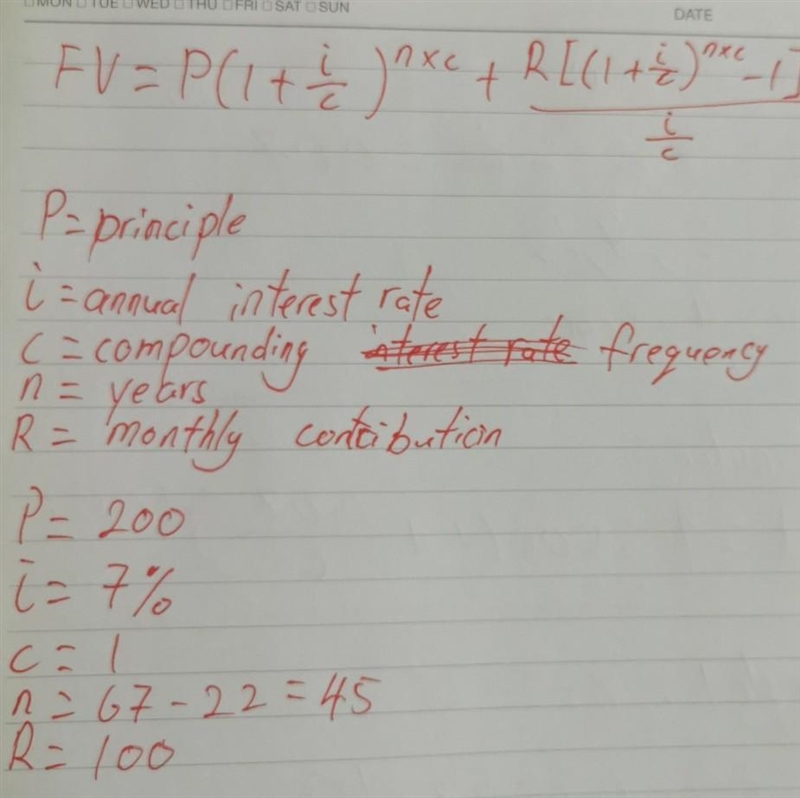 □MON □TUE □WED □THU □FRI □SAT □SUN
DATE
FV = P(1 + i/c)^(n×c) + R[(1 + i/c)^(n×c) - 1] / (i/c)
P = principle
i = annual interest rate
c = compounding interest rate frequency
n = years
R = monthly contribution
P = 200
i = 7%
c = 1
n = 67 - 22 = 45
R = 100